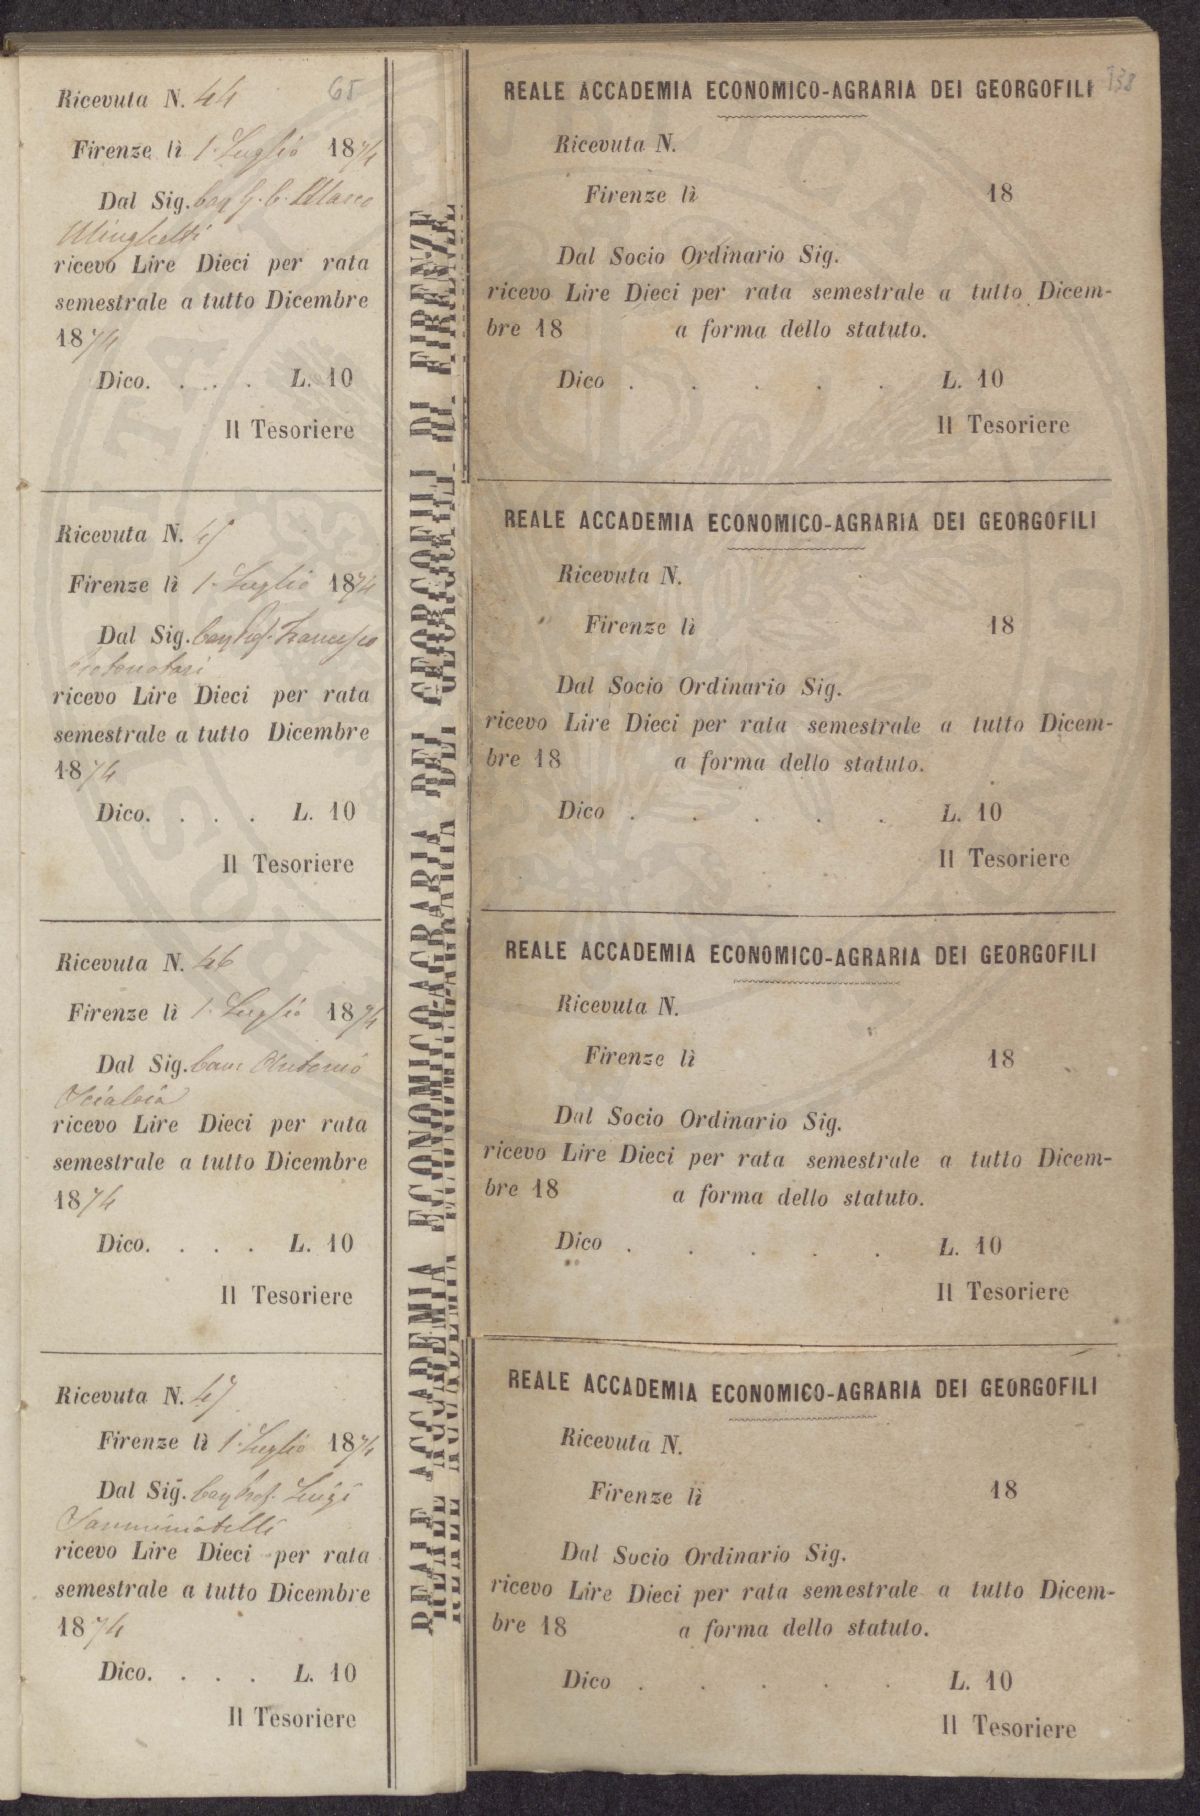 65
Ricevuta N. 44
Firenze lì 1. Luglio 1874
Dal Sig. Marco
Minghetti
ricevo Lire Dieci per rata
semestrale a tutto Dicembre
1874
Dico. . . . . L. 10
Il Tesoriere
Ricevuta N. 45
Firenze lì 1. Luglio 1874
Dal Sig. Cav Prof. Francesco
Protonotari
ricevo Lire Dieci per rata
semestrale a tutto Dicembre
1874
Dico. . . . . L. 10
Il Tesoriere
Ricevuta N. 46
Firenze lì 1. Luglio 1874
Dal Sig. Antonio
Scialoia
ricevo Lire Dieci per rata
semestrale a tutto Dicembre
1874
Dico. . . . . L. 10
Il Tesoriere
Ricevuta N. 47
Firenze lì 1. Luglio 1874
Dal Sig. Cav Prof. Luigi
Sanminiatelli
ricevo Lire Dieci per rata
semestrale a tutto Dicembre
1874
Dico. . . . . L. 10
Il Tesoriere
REALE ACCADEMIA ECONOMICO-AGRARIA DEI GEORGOFILI DI FIRENZE
138
REALE ACCADEMIA ECONOMICO-AGRARIA DEI GEORGOFILI
Ricevuta N.
Firenze lì 18
Dal Socio Ordinario Sig.
ricevo Lire Dieci per rata semestrale a tutto Dicem-
bre 18 a forma dello statuto.
Dico . . . . . L. 10
Il Tesoriere
REALE ACCADEMIA ECONOMICO-AGRARIA DEI GEORGOFILI
Ricevuta N.
Firenze lì 18
Dal Socio Ordinario Sig.
ricevo Lire Dieci per rata semestrale a tutto Dicem-
bre 18 a forma dello statuto.
Dico . . . . . L. 10
Il Tesoriere
REALE ACCADEMIA ECONOMICO-AGRARIA DEI GEORGOFILI
Ricevuta N.
Firenze lì 18
Dal Socio Ordinario Sig.
ricevo Lire Dieci per rata semestrale a tutto Dicem-
bre 18 a forma dello statuto.
Dico . . . . . L. 10
Il Tesoriere
REALE ACCADEMIA ECONOMICO-AGRARIA DEI GEORGOFILI
Ricevuta N.
Firenze lì 18
Dal Socio Ordinario Sig.
ricevo Lire Dieci per rata semestrale a tutto Dicem-
bre 18 a forma dello statuto.
Dico . . . . . L. 10
Il Tesoriere